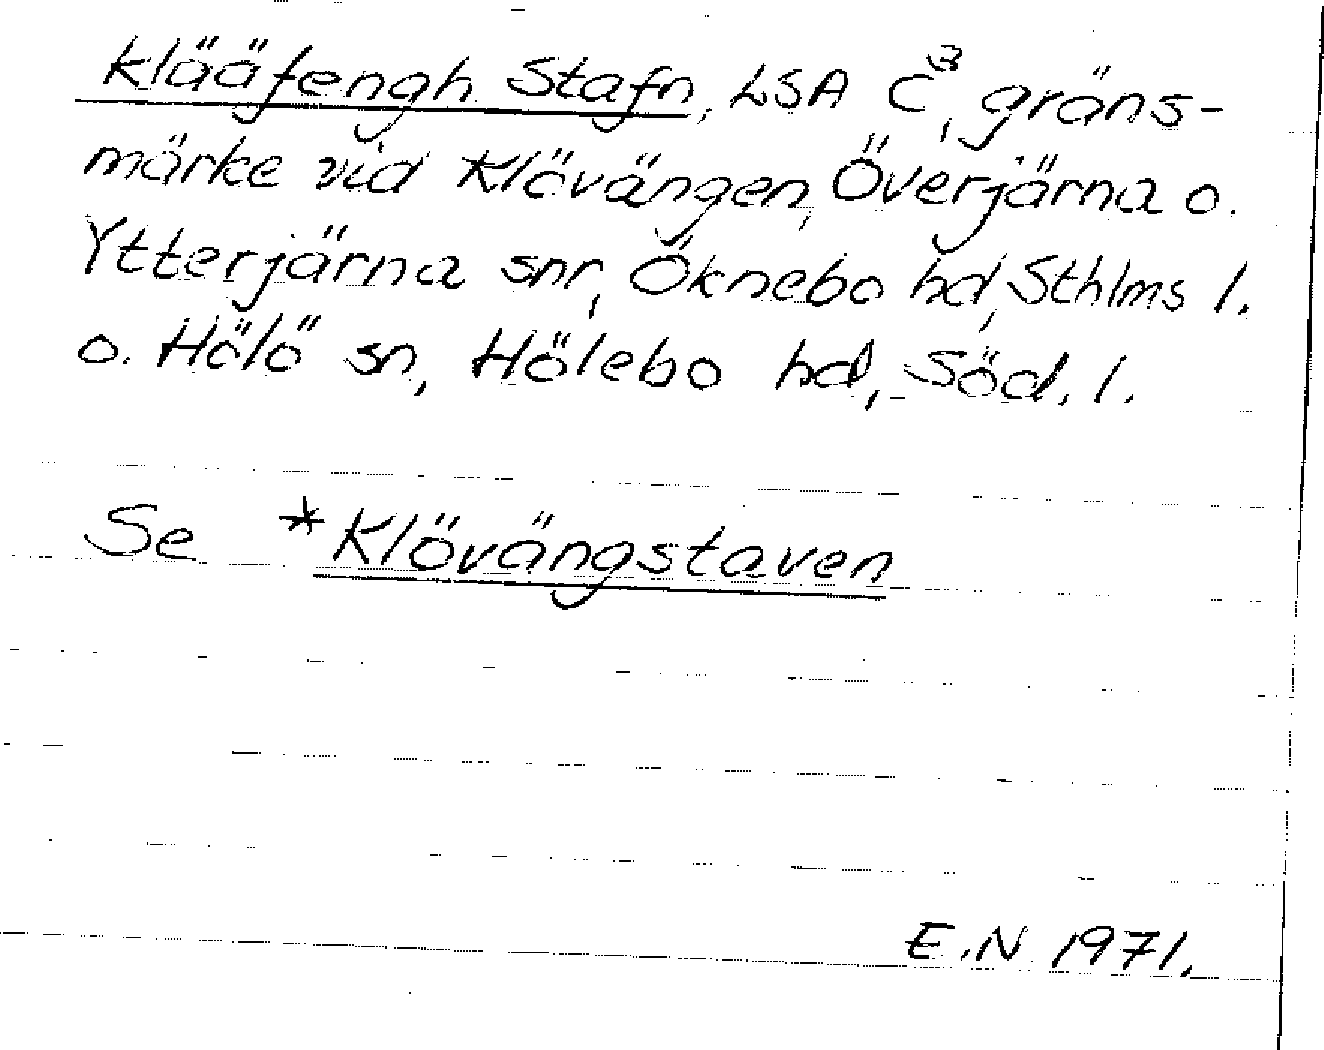 Klääfengh Stafn, LSA C³, gräns-
märke vid Klövängen, Överjärna o.
Ytterjärna snr, Öknebo hd, Sthlms l.
o. Hölö sn, Hölebo hd, Söd. l.
Se *Klövängstaven
E.N 1971.